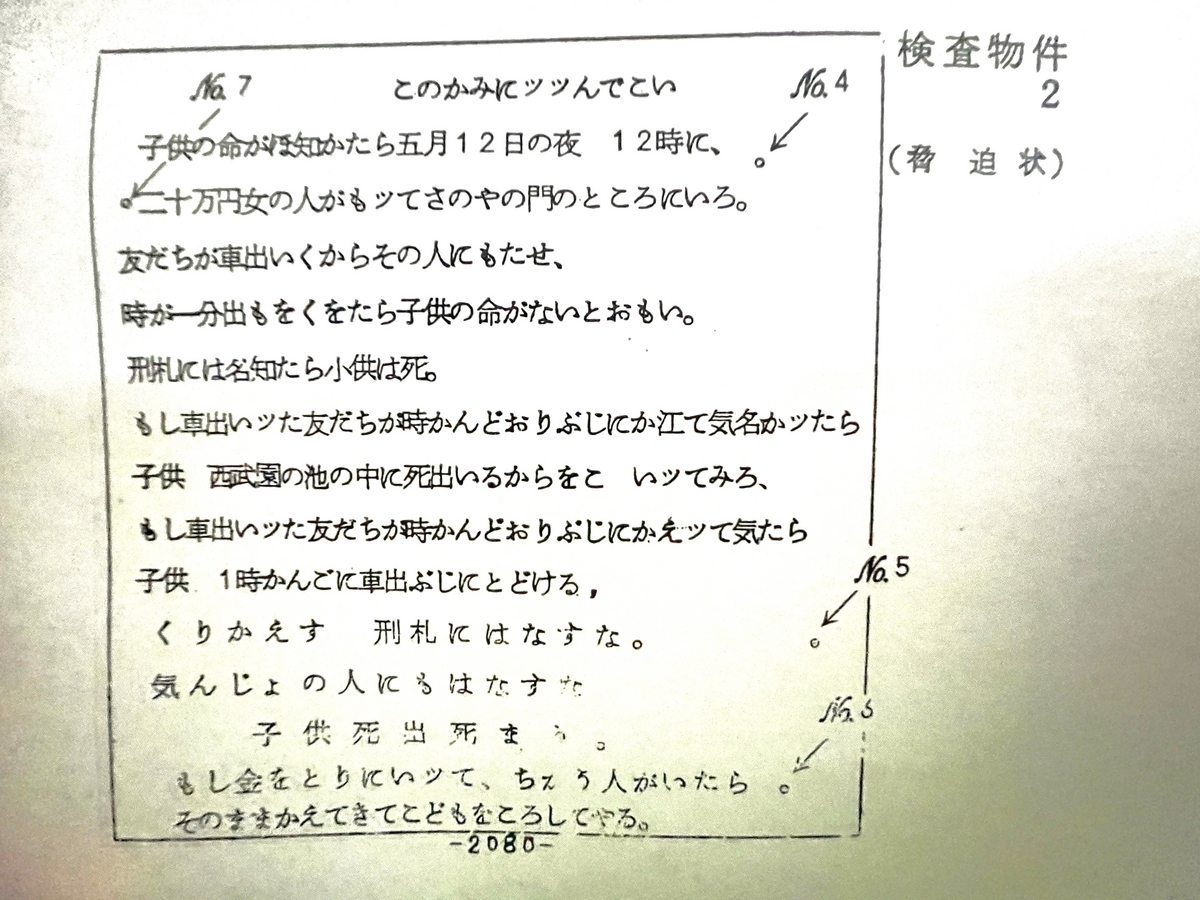 検査物件
2
(脅 迫 状)
No. 7 このかみにツツんでこい No. 4
子供の命がほ知かたら五月12日の夜 12時に、
二十万円女の人がもツてさのやの門のところにいろ。
友だちが車出いくからその人にもたせ、
時が一分出もをくをたら子供の命がないとおもい。
刑札には名知たら小供は死。
もし車出いツた友だちが時かんどおりぶじにか江て気名かツたら
子供 西武園の池の中に死出いるからをこ いツてみろ、
もし車出いツた友だちが時かんどおりぶじにかえツて気たら
子供 1時かんごに車出ぶじにとどける,
No. 5
くりかえす 刑札にはなすな。
気んじょの人にもはなすな
子供死出死まう。
もし金をとりにいツて、ちえう人がいたら
そのままかえてきてこどもをころしてやる。
-2080-